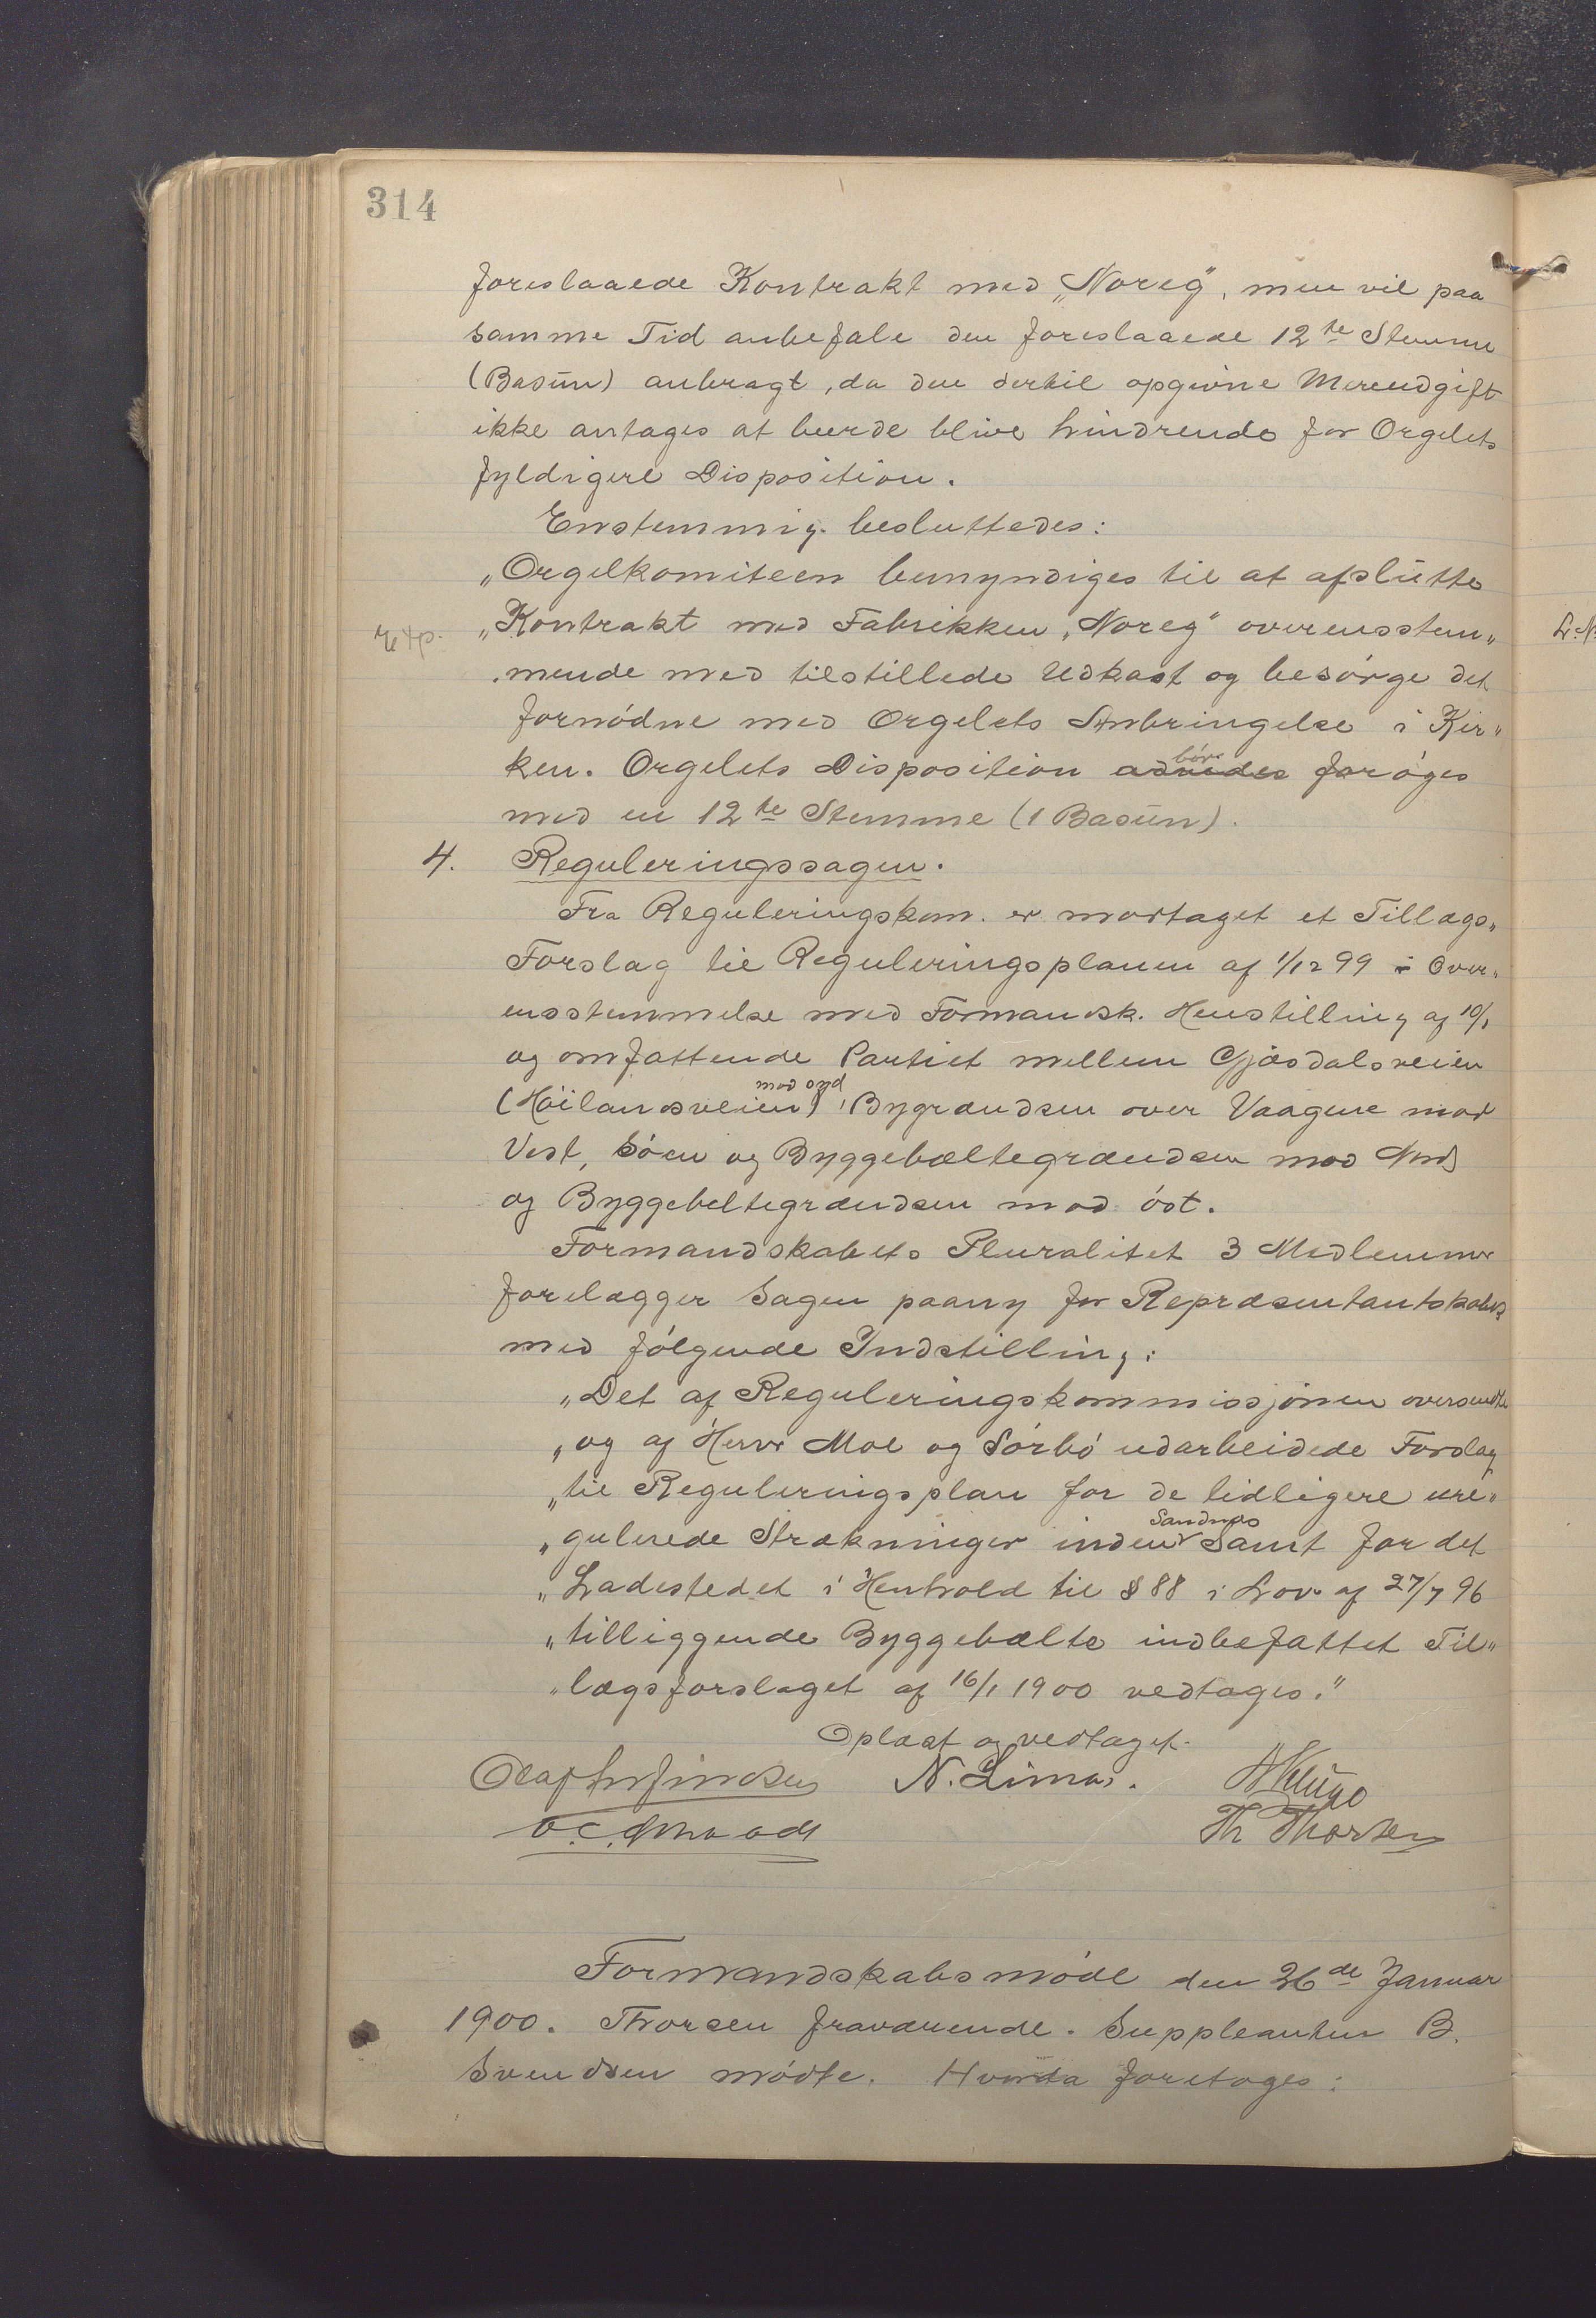 314
foreslaaede Kontrakt med „Noreg", men vil paa
samme Tid anbefale den foreslaaede 12te Stemme
(Basun) anbragt, da den dertil opgivne Merudgift
ikke antages at burde blive hindrende for Orgelets
fyldigere Disposition.
Enstemmig besluttedes:
„Orgelkomiteen bemyndiges til at afslutte
Exp.
„Kontrakt med Fabrikken „Noreg" overensstem„
„mende med tilstillede Udkast og besørge det
fornødne med Orgelets Anbringelse i Kir„
ken. Orgelets Disposition bør forøges
med en 12te Stemme (1 Basun).
4. Reguleringssagen.
Fra Reguleringskom. er modtaget et Tillægs„
Forslag til Reguleringsplanen af 1/12 99 i Over„
ensstemmelse med Formandsk. Henstilling af 10/1
og omfattende Partiet mellem Gjæsdalsveien
(Høilandsveien) mod syd, Bygrændsen over Vaagene mod
Vest, Søen og Byggebæltegrændsen mod Nord
og Byggebeltegrændsen mod øst.
Formandskabets Pluralitet 3 Medlemmer
forelægger Sagen paany for Repræsentantskabet
med følgende Indstilling:
„Det af Reguleringskommissjonen oversendte
„og af Herrer Moe og Sørbø udarbeidede Forslag
„til Reguleringsplan for de tidligere ure„
„gulerede Strækninger inden Sandnæs Samt for det
„Ladestedet i Henhold til § 88 i Lov af 27/7 96
„tilliggende Byggebælte indbefattet Til„
„lægsforslaget af 16/1 1900 vedtages."
Oplæst og vedtaget.
N. Lima.
Th Thorsen
Formandskabsmøde den 26de Januar
1900. Thorsen fraværende. Suppleanten B.
Svendsen mødte. Hvorda foretoges: